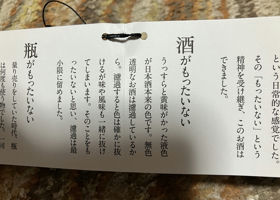 という日常的な感覚でした
その「もったいない」という
精神を受け継ぎ、このお酒は
できました。
酒がもったいない
うっすらと黄味がかった液色
が日本酒本来の色です。無色
透明なお酒は濾過しているか
ら。濾過すると色は確かに抜
けるが味や風味も一緒に抜け
てしまいます。そのことをも
ったいないと思い、濾過は最
小限に留めました。
瓶がもったいない
量り売りをしていた時代、瓶
は何度も使う物でした。